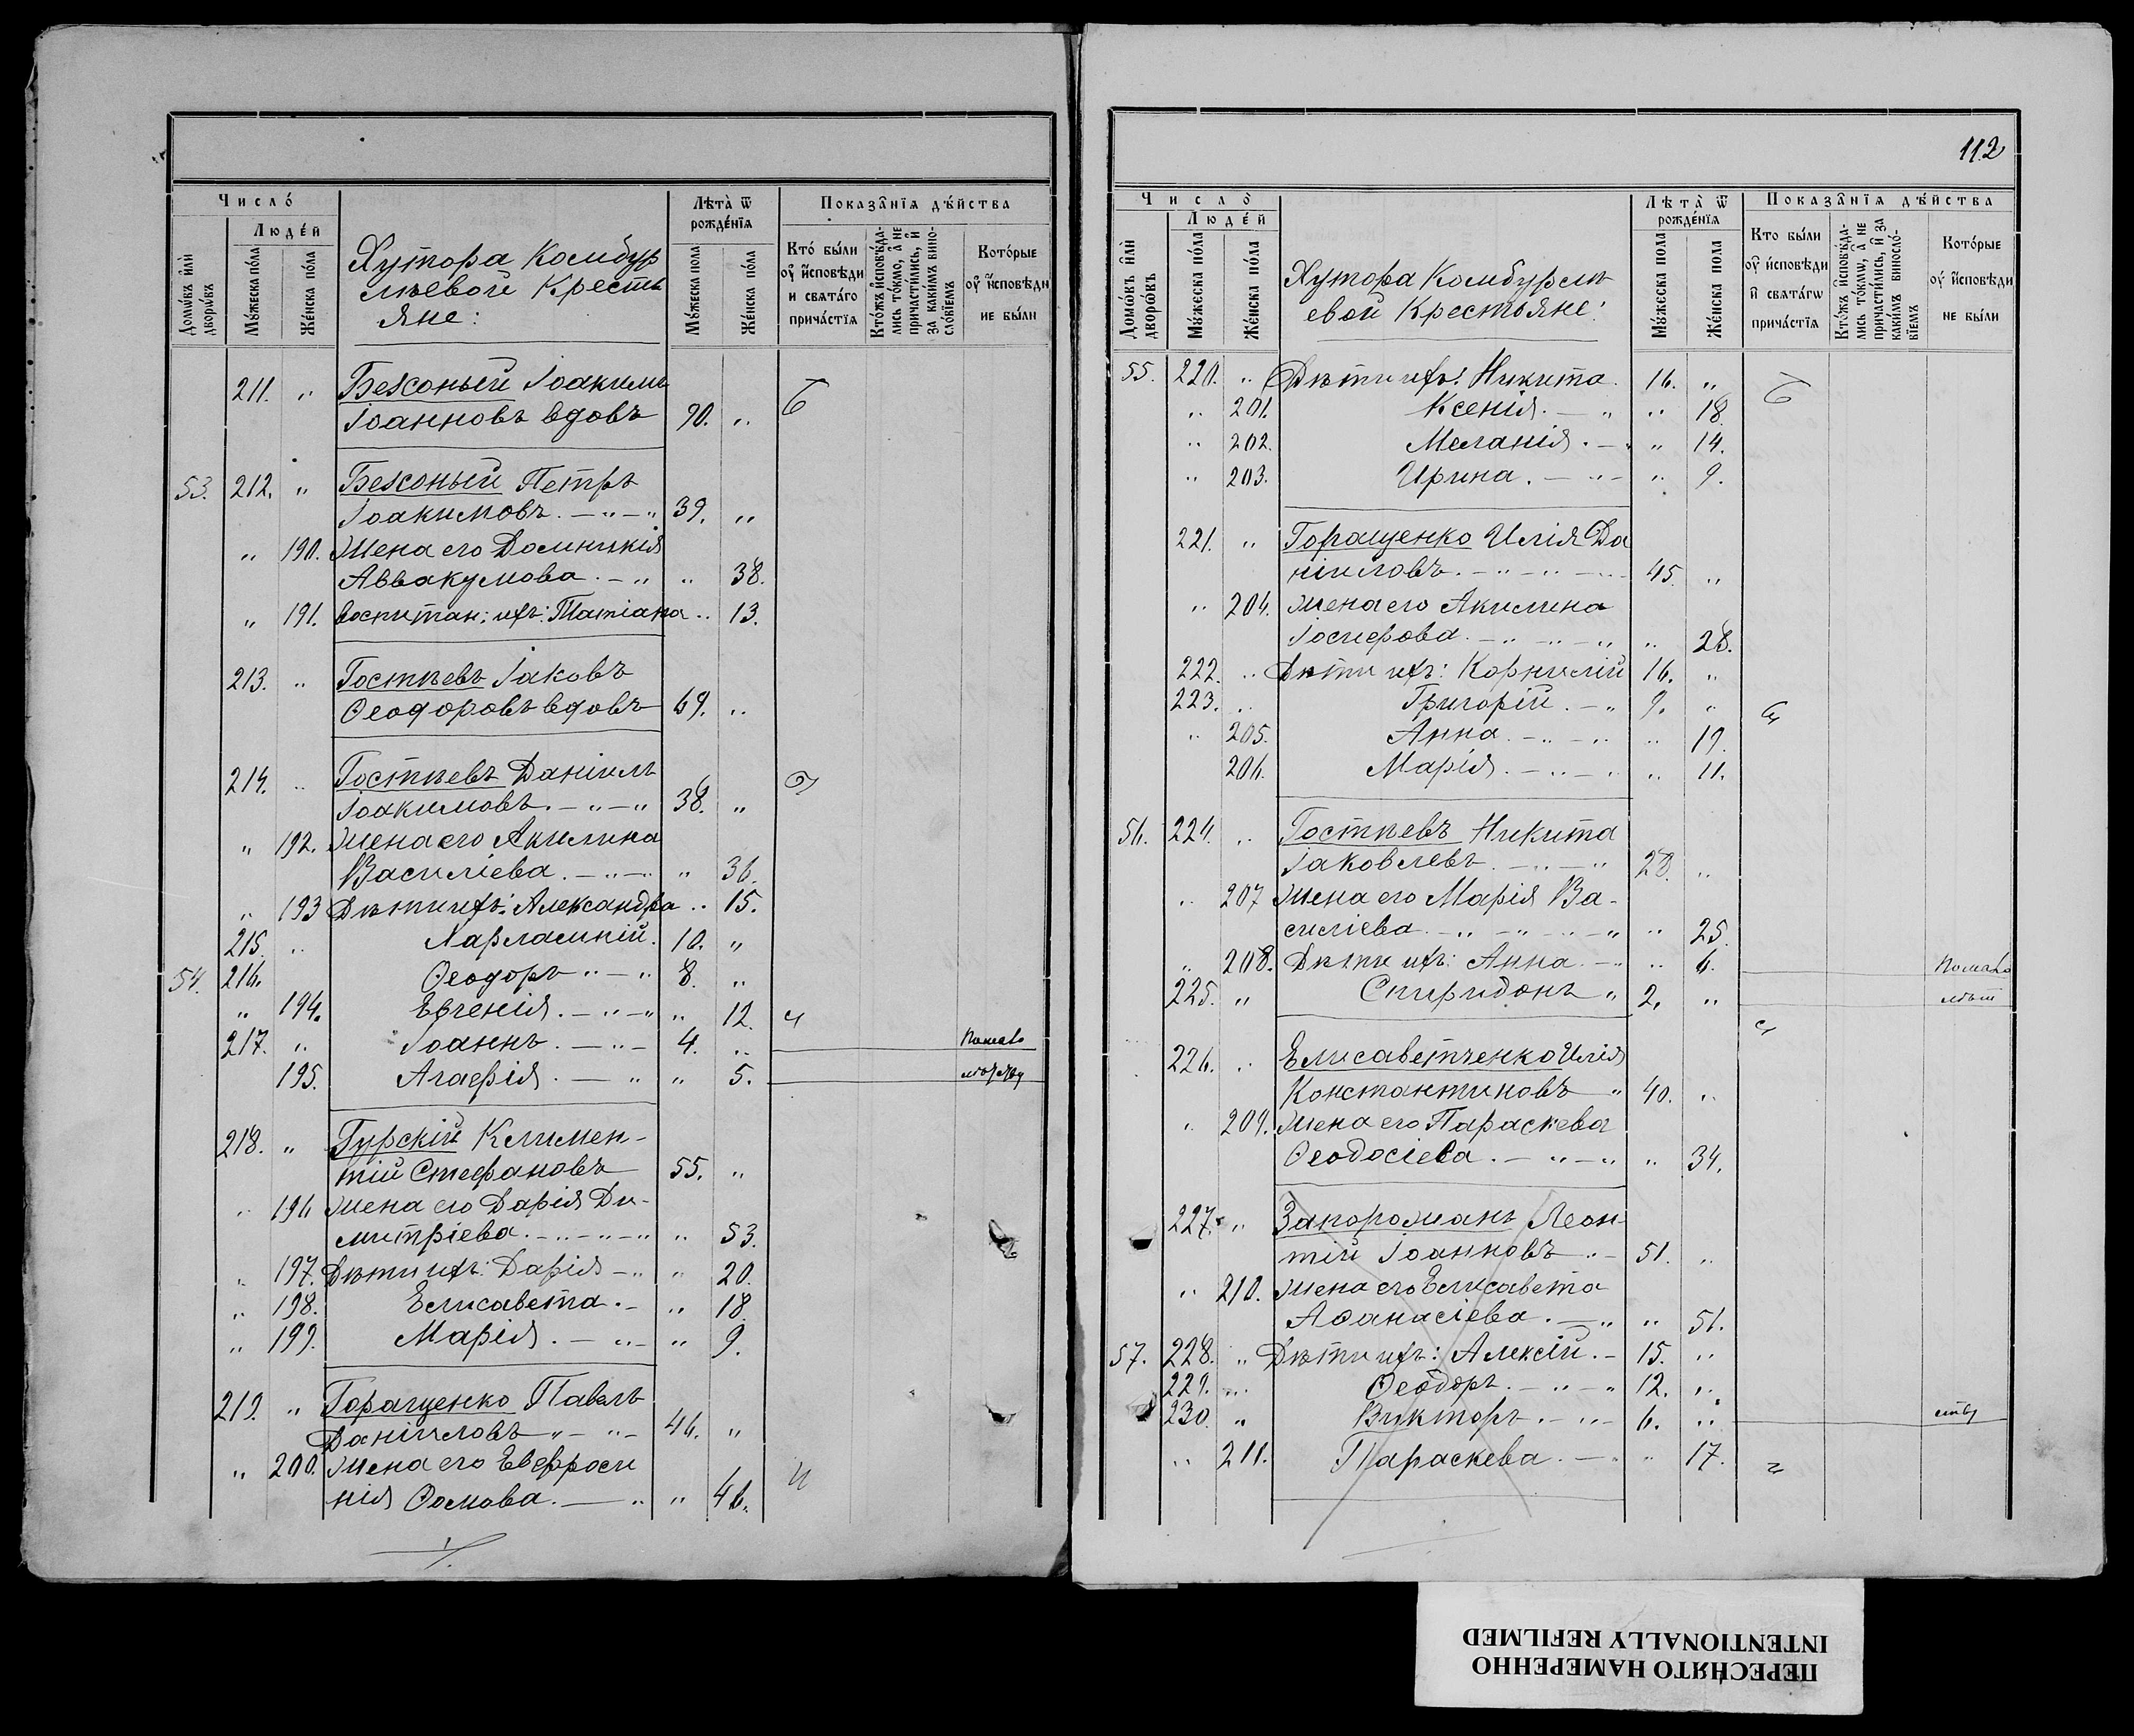 Число̀
Людéй
Домѡ́въ и҆лѝ дворѡ́въ
Мꙋ́жеска по́ла
Же́нска по́ла
Хутора Камбур
лѣевой Кресть
яне:
Лѣта̀ ѿ рожде́нїя
Мꙋ́жеска пола
Же́нска по́ла
Показа̑нїя дѣ́йства
Кто́ бы́ли оу҆ и҆сповѣди и свята́го прича́стїя
Кто́жъ и҆сповѣ́дались то́кмо, а҆ не причасти́лись, и҆ за каки́мъ виносло́вїемъ
Кото́рые оу҆ и҆сповѣди не бы́ли
211. „ Безконый Іоакимъ
Іоанновъ вдовъ 90. „
53. 212. „ Безконый Петръ
Іоакимовъ. – „ – „ 39. „
„ 190. Жена его Домникія
Аввакумова. – „ „ 38.
„ 191. воспитан: ихъ: Татіана „ 13.
213. „ Гостѣевъ Іаковъ
Ѳеодоровъ вдовъ 69. „
214. „ Гостѣевъ Даніилъ
Іоакимовъ. – „ – „ 38. „
„ 192. Жена его Акилина
Василіева. – „ – „ „ 36.
„ 193 Дѣти ихъ: Александра „ 15.
215. „ Харлампій. 10. „
54. 216. Ѳеодоръ „ – „ 8. „
„ 194. Евгенія. – „ – „ „ 12.
217. „ Іоаннъ. – „ – 4. „
195. Агафія. – „ „ 5.
218. „ Гурскій Климен-
тій Стефановъ 55. „
„ 196 Жена его Дарія Ди-
митріева. – „ – „ – „ „ 53.
„ 197. Дѣти ихъ: Дарія – „ „ 20.
„ 198. Елисавета. – „ 18.
„ 199. Марія. – „ – „ 9.
219. „ Горащенко Павелъ
Даніиловъ „ – „ – 46. „
„ 200. Жена его Евфроси
нія Ѳомова. – „ „ 46.
112
Число̀
Людéй
Домѡ́въ и҆лѝ дворѡ́въ
Мꙋ́жеска по́ла
Же́нска по́ла
Хутора Камбурлѣ
евой Крестьяне:
Лѣта̀ ѿ рожде́нїя
Мꙋ́жеска пола
Же́нска пола
Показа̑нїя дѣ́йства
Кто бы́ли оу҆ и҆сповѣди и҆ свята́гѡ прича́стїя
Кто́жъ и҆сповѣ́дались то́кмѡ, а҆ не причасти́лись, и҆ за каки́мъ виносло́вїемъ
Кото́рые оу҆ и҆сповѣди не бы́ли
55. 220. „ Дѣти ихъ: Никита. 16. „
„ 201. Ксенія. – „ „ 18.
„ 202. Меланія. – „ „ 14.
„ 203. Ирина. – „ – „ 9.
221. „ Горащенко Илія Да
ніиловъ. – „ – „ – „ 45. „
„ 204. Жена его Акилина
Іосифова. – „ – „ – „ „ 28.
222. „ Дѣти ихъ: Корнилій 16. „
223. „ Григорій. – „ 9. „
„ 205. Анна. – „ – „ „ 19.
206. Марія. – „ – „ „ 11.
56. 224. „ Гостѣевъ Никита
Іаковлевъ. – „ – „ 28. „
„ 207 Жена его Марія Ва-
силіева. – „ – „ – „ – „ „ 25.
„ 208. Дѣти ихъ: Анна. – „ „ 6.
225. „ Спиридонъ „ 2. „
226. „ Елисаветченко Илія
Константиновъ „ 40. „
„ 209. Жена его Параскева
Ѳеодосіева. – „ – „ „ 34.
227. „ Запорожанъ Леон-
тій Іоанновъ „ – 51. „
„ 210. Жена его Елисавета
Аѳанасіева. – „ „ 51.
57. 228. „ Дѣти ихъ: Алексій. – 15. „
229. „ Ѳеодоръ. – „ – „ 12. „
230. „ Викторъ. – „ – 6. „
„ 211. Параскева. – „ „ 17.
ПЕРЕСНЯТО НАМЕРЕННО
INTENTIONALLY REFILMED